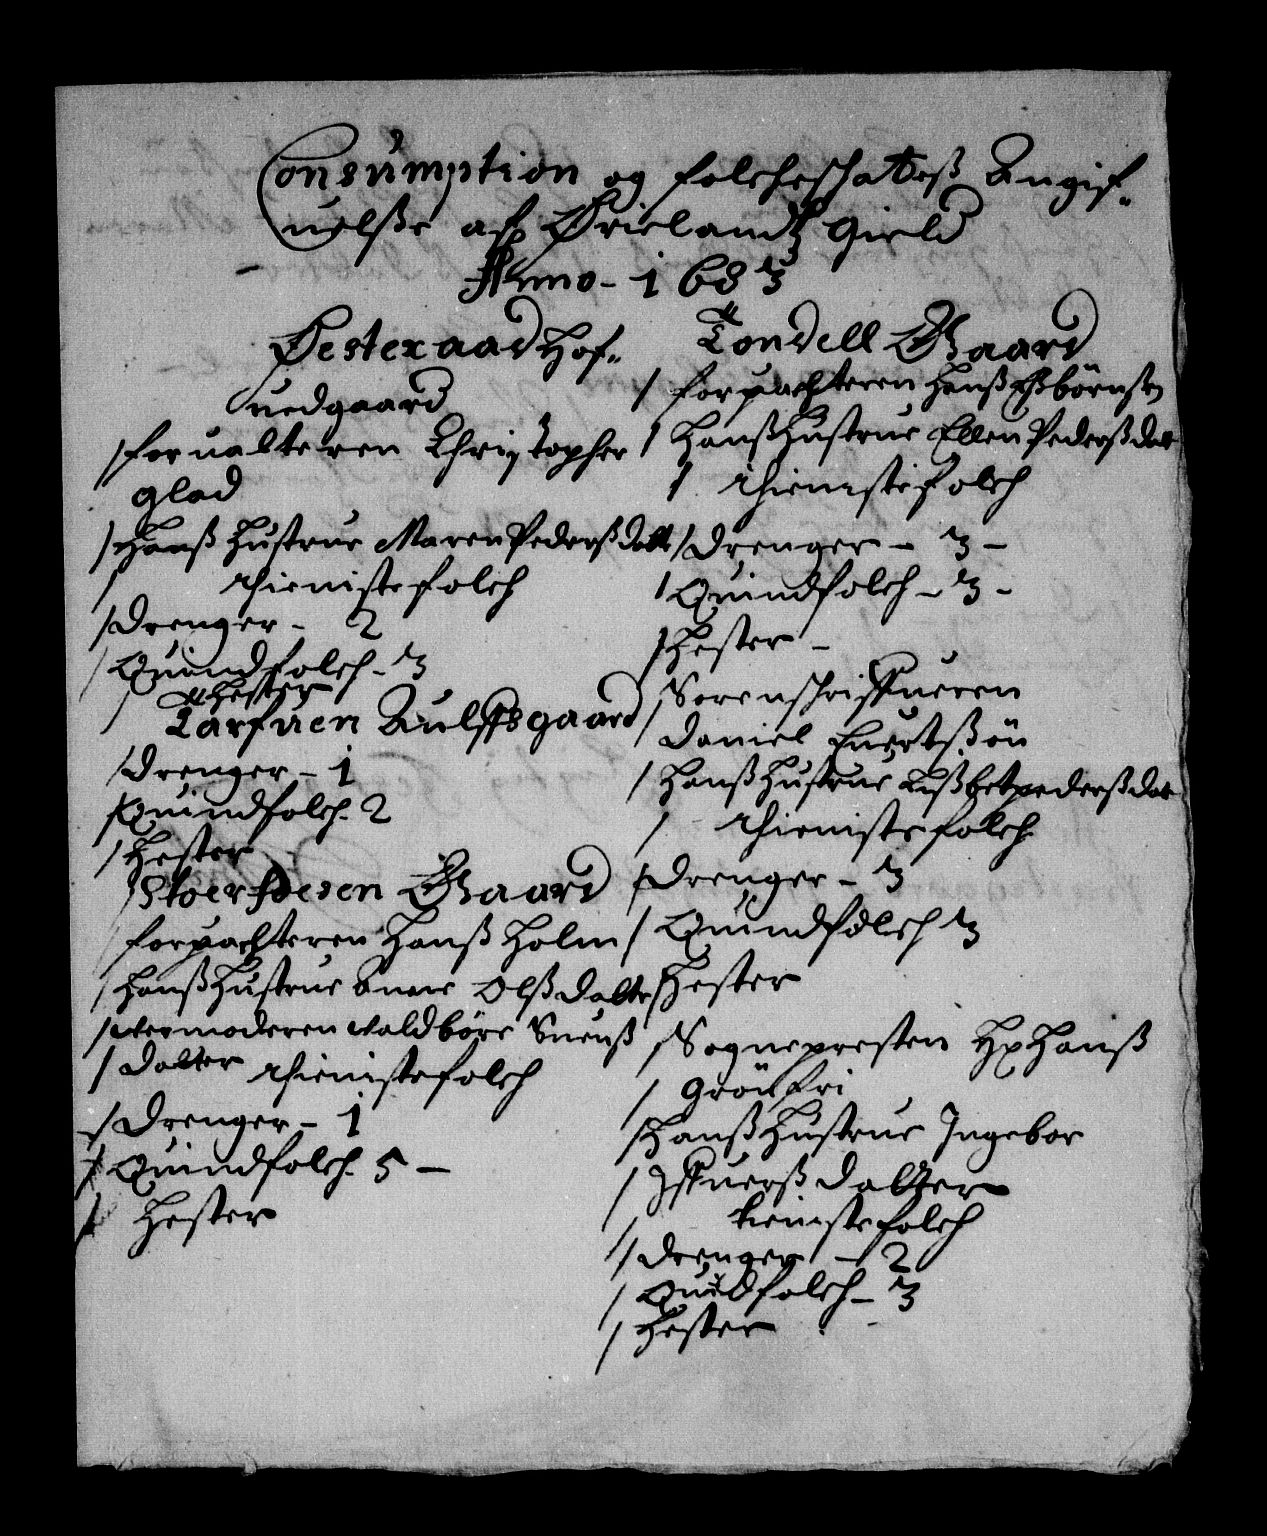 Consumption og folcheschatteß Angif-
uelße aff Ørielandtz Gield
Anno - 1683
Østeraad Hof-
uedgaard
/ forualteren Christopher
Glad
/ Hanß Hustrue Maren Pederßdatt
/ thienistefolch
/ Drenger - 2
/ Quindfolch - 3
/ Hester
Tarfuen Aulffsgaard
/ Drenger - 1
/ Quindfolch. 2
/ Hester
Stoerfosen Gaard
forpachteren Hanß Holm
/ Hanß Hustrue Anne Olßdatter
/ wermoderen Valdbore Suenß
/ Datter thienistefolch
/ Drenger - 1
/ Quindfolch. 5 -
/ Hester
Tondell Gaard
/ forpachteren Hanß Eßbörnsen
/ Hanß Hustrue Ellen Pederßdatt
/ thienistefolch
/ Drenger - 3 -
/ Quindfolch - 3 -
/ Hester -
/ Sorenschriffueren
Daniel Euertßön
/ Hanß Hustrue Lißbet pederßdat
/ thienistefolch
/ Drenger - 3
/ Quindfolch 3
/ Hester
/ Sognepresten Hr Hanß
/ Grön fri
/ Hanß Hustrue Ingebor
/ Iffuerß Datter
/ tienistefolch
/ Drenger - 2
/ Quindfolch - 3
/ Hester